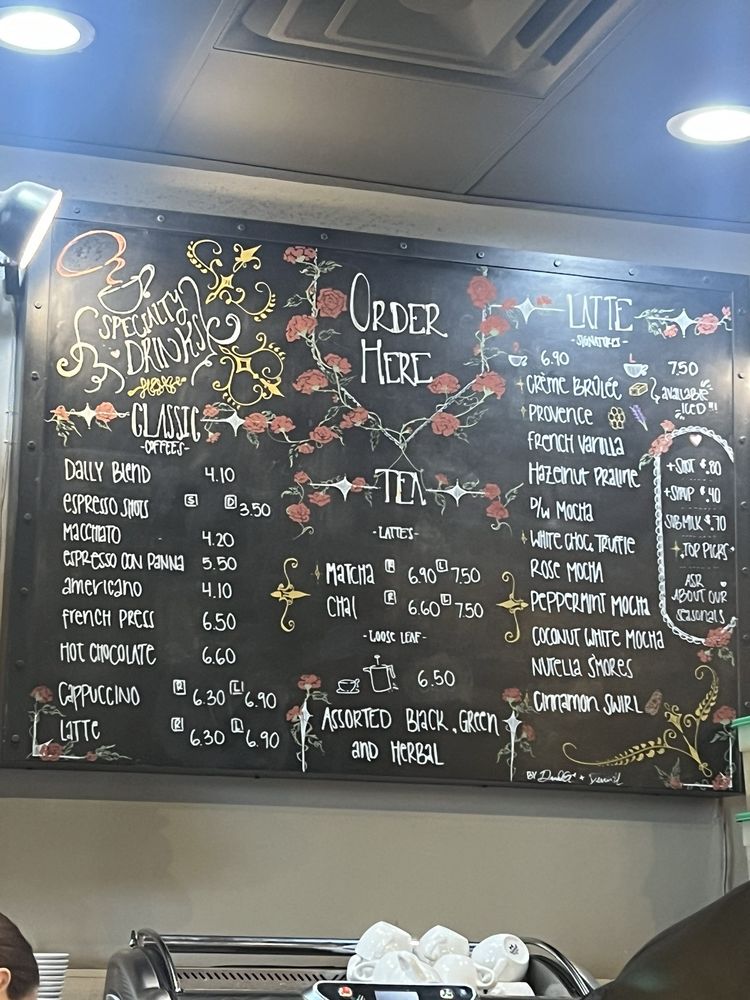 SPECIALTY
DRINKS
CLASSIC
-COFFEES-
DAILY BLEND 4.10
ESPRESSO SHOTS S D 3.50
MACCHIATO 4.20
ESPRESSO CON PANNA 5.50
AMERICANO 4.10
FRENCH PRESS 6.50
HOT CHOCOLATE 6.60
CAPPUCCINO R 6.30 L 6.90
LATTE R 6.30 L 6.90
ORDER
HERE
TEA
-LATTES-
MATCHA R 6.90 L 7.50
CHAI R 6.60 L 7.50
-LOOSE LEAF-
6.50
ASSORTED BLACK, GREEN
AND HERBAL
LATTE
-SIGNATURES-
6.90 7.50
CRÈME BRÛLÉE
AVAILABLE
ICED!!!
PROVENCE
FRENCH VANILLA
HAZELNUT PRALINE
D/W MOCHA
WHITE CHOC. TRUFFLE
ROSE MOCHA
PEPPERMINT MOCHA
COCONUT WHITE MOCHA
NUTELLA S'MORES
CINNAMON SWIRL
+SHOT $.80
+SYRUP $.40
SUB MILK $.70
TOP PICKS
ASK
ABOUT OUR
SEASONALS
BY